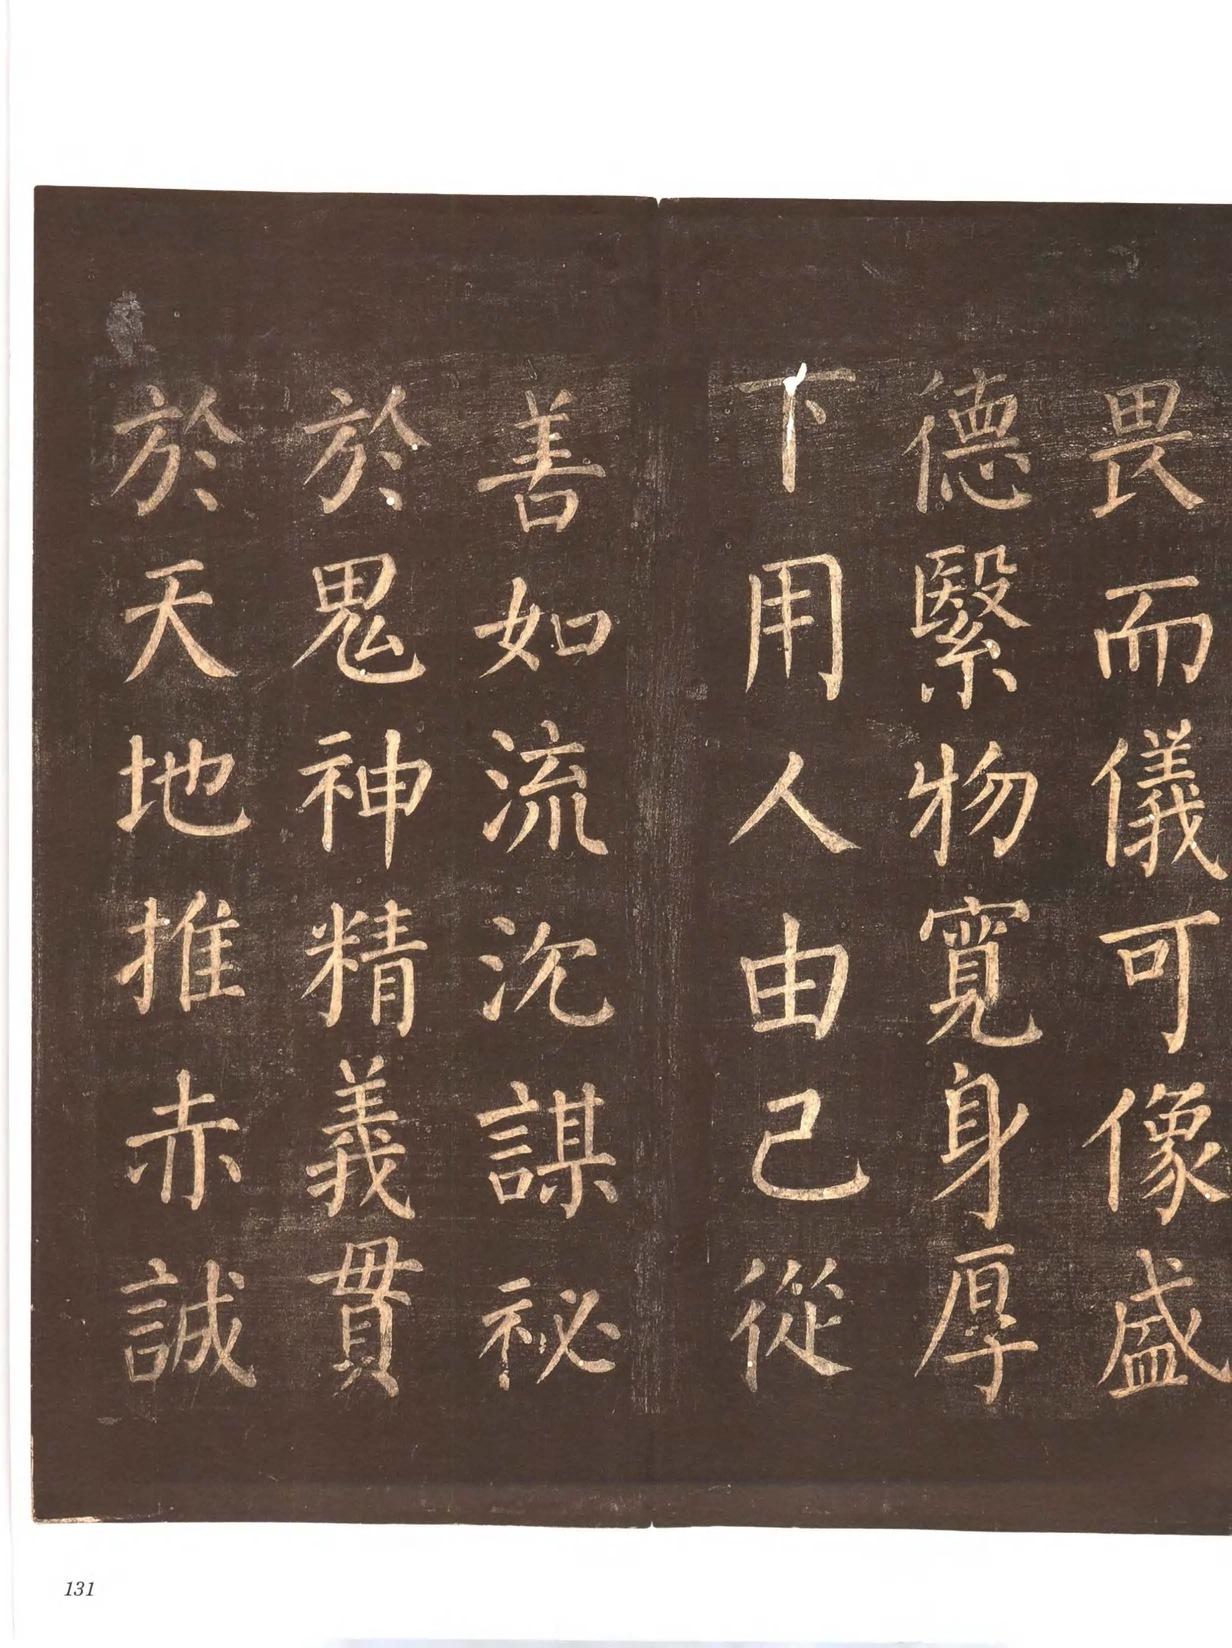 畏而儀可像盛
德繄物寬身厚
下用人由己從
善如流沉謀祕
於鬼神精義貫
於天地推赤誠
131